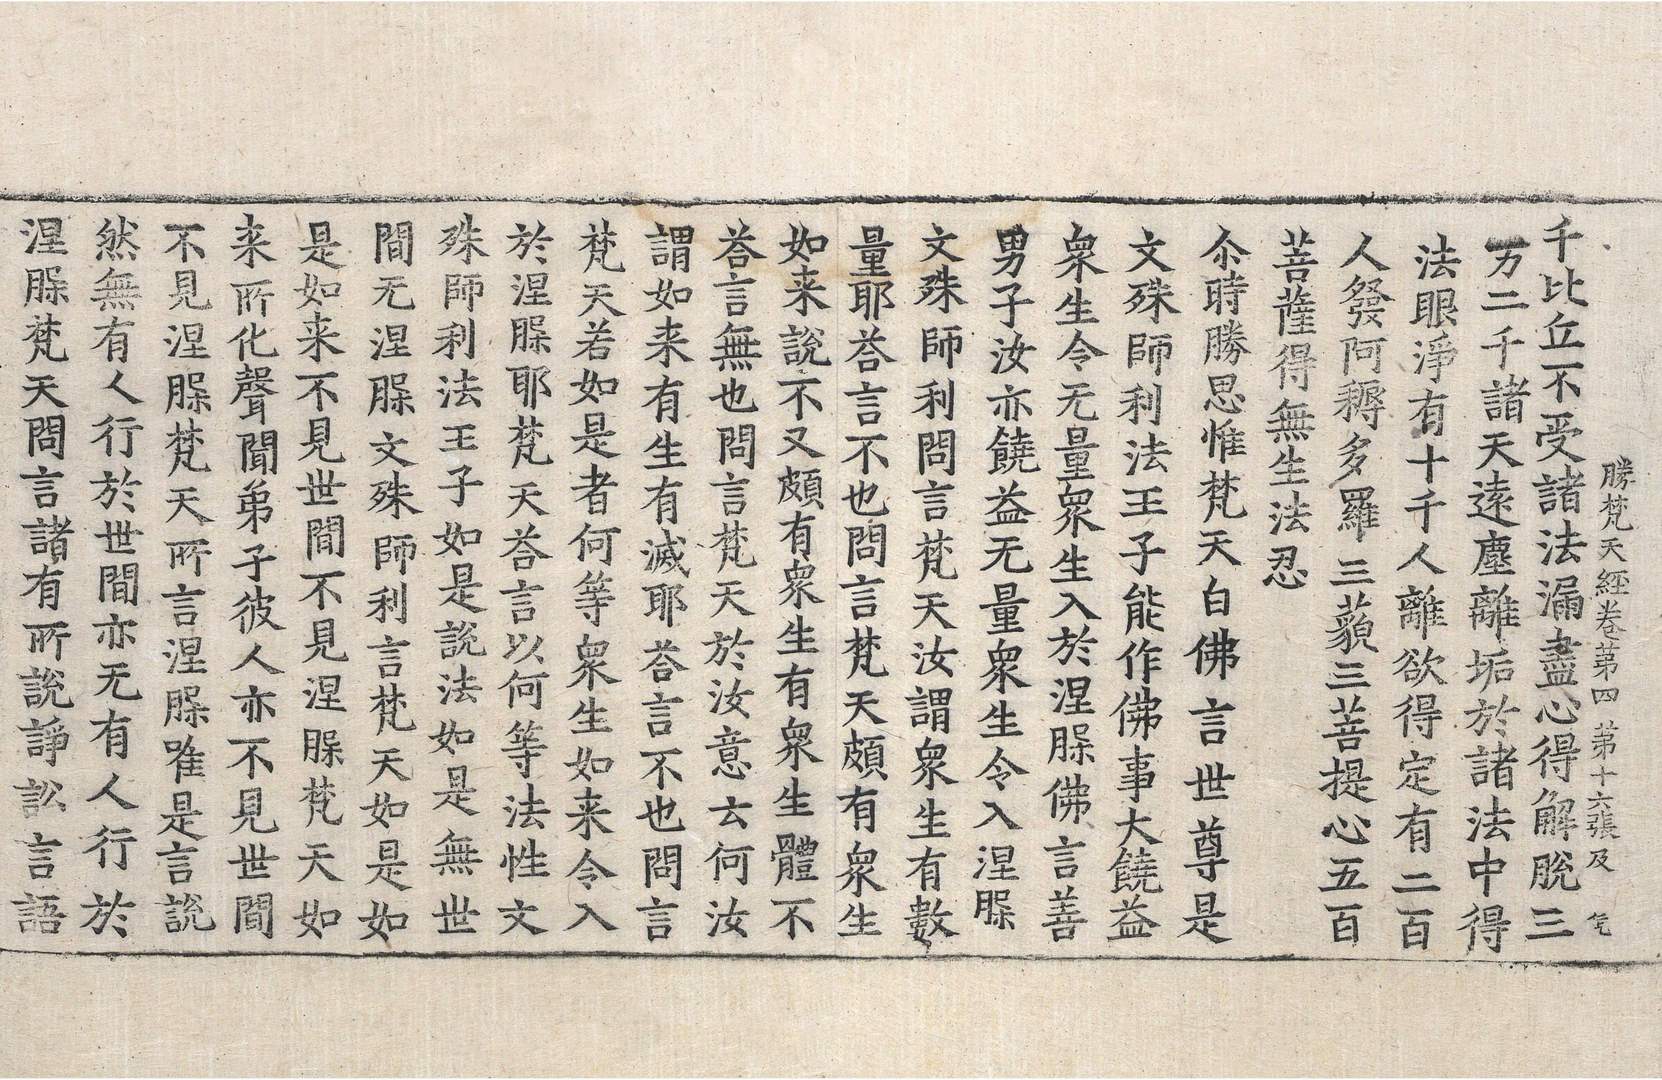 勝梵天經卷第四　第十六張及
千比丘不受諸法漏盡心得解脫三
万二千諸天遠塵離垢於諸法中得
法眼淨有十千人離欲得定有二百
人發阿耨多羅三藐三菩提心五百
菩薩得無生法忍
尒時勝思惟梵天白佛言世尊是
文殊師利法王子能作佛事大饒益
衆生令无量衆生入於涅脲佛言善
男子汝亦饒益无量衆生令入涅脲
文殊師利問言梵天汝謂衆生有數
量耶荅言不也問言梵天頗有衆生
如来說不又頗有衆生有衆生體不
荅言無也問言梵天於汝意云何汝
謂如来有生有滅耶荅言不也問言
梵天若如是者何等衆生如来令入
於涅脲耶梵天荅言以何等法性文
殊師利法王子如是說法如是無世
間无涅脲文殊師利言梵天如是如
是如来不見世間不見涅脲梵天如
来所化聲聞弟子彼人亦不見世間
不見涅脲梵天所言涅脲唯是言說
然無有人行於世間亦无有人行於
涅脲梵天問言諸有所說諍訟言語